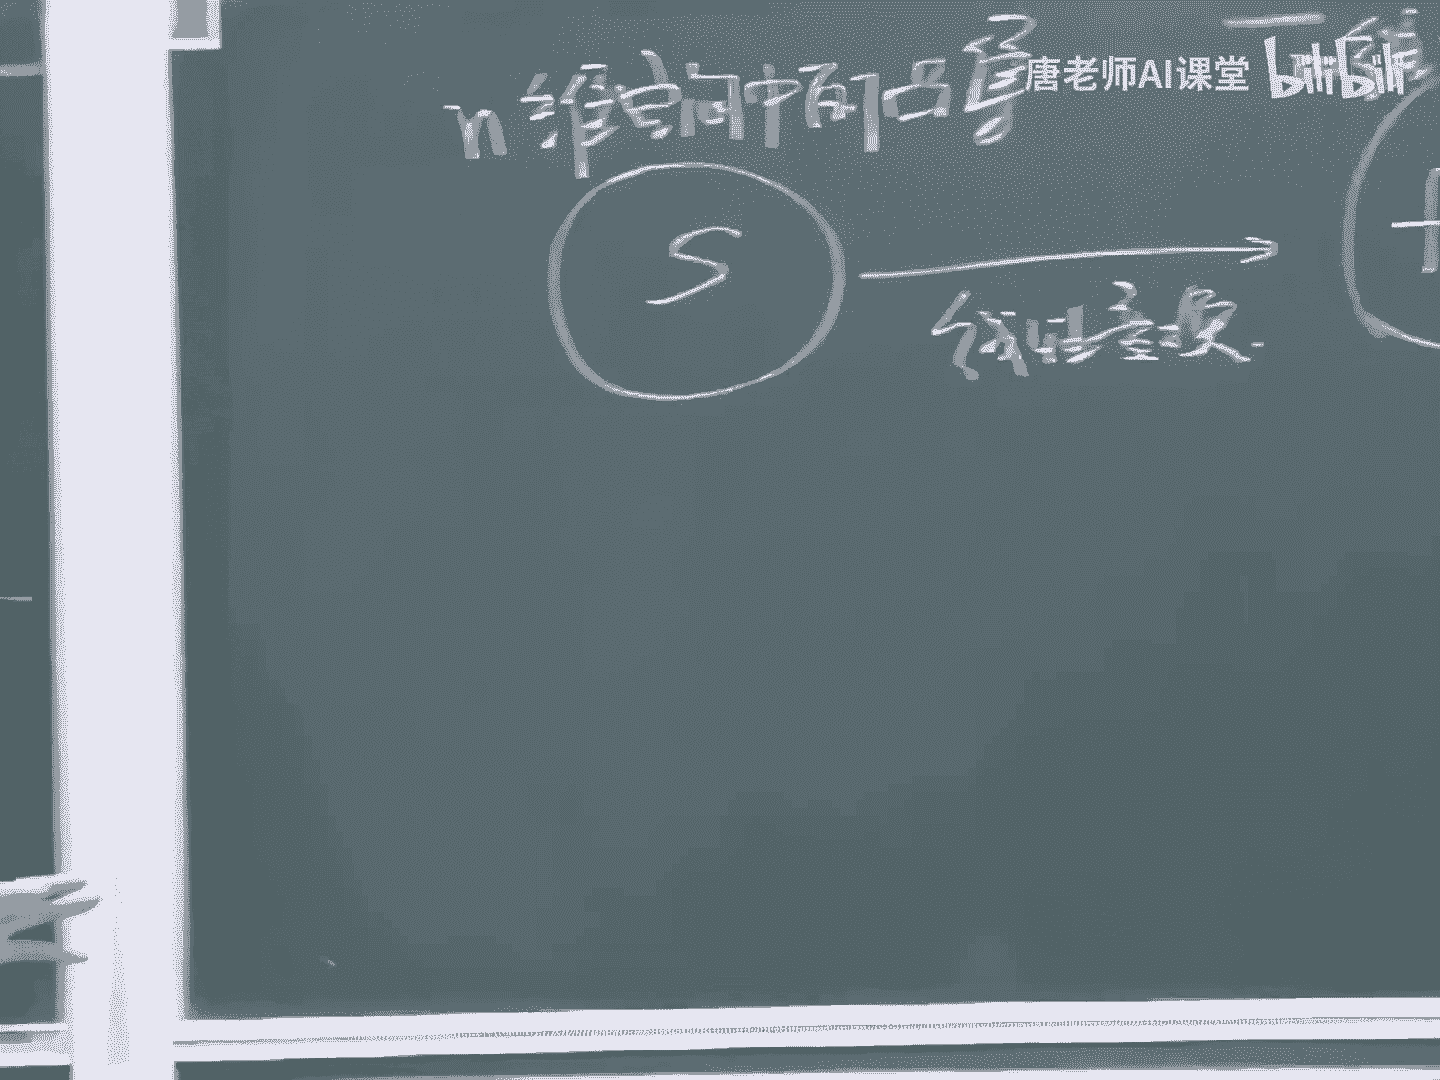 n维空间中的凸集
唐老师AI课堂 bilibili
S
线性变换